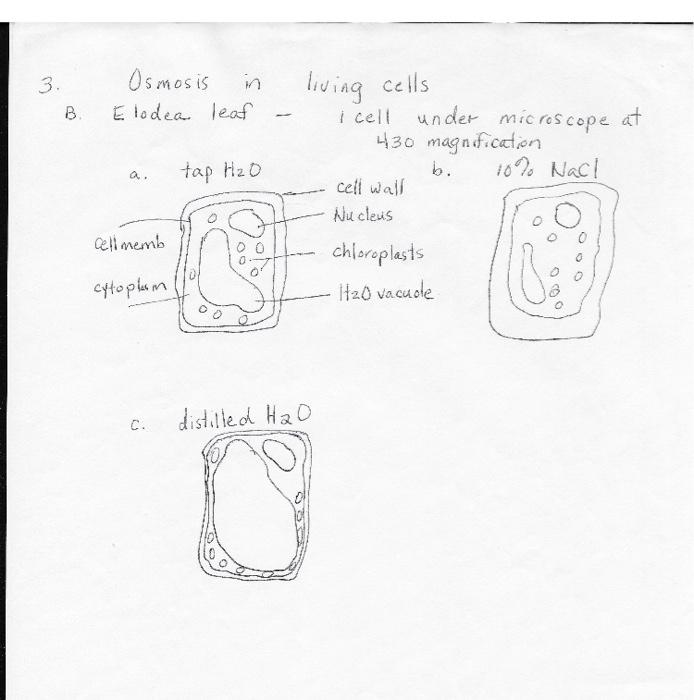 3. Osmosis in living cells
B. Elodea leaf - 1 cell under microscope at
430 magnification
a. tap H2O
b. 10% NaCl
cell wall
Nucleus
cell memb
chloroplasts
cytoplasm
H2O vacuole
c. distilled H2O